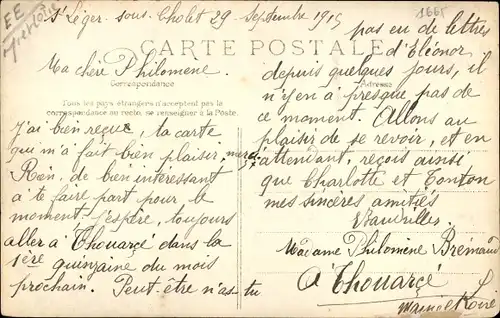 St Léger-sous-Cholet 29 Septembre 1915
1665
CARTE POSTALE
Ma chère Philomene.
Correspondance
Tous les pays étrangers n'acceptent pas la
correspondance au recto, se renseigner à la Poste.
J'ai bien reçue, ta carte
qui m'a fait bien plaisir, merci
Rien, de bien intéressant
à te faire part pour le
moment. J'espère, toujours
aller à Thouarcé dans la
1ère quinzaine du mois
prochain. Peut-être n'as-tu
pas eu de lettres
d'Eléonor
depuis quelques jours, il
Adresse
n'y en a presque pas de
ce moment. Allons au
plaisir de se revoir, et en
attendant, reçois ainsi
que Charlotte et Tonton
mes sincères amitiés
Madame Philomène Brémaud
à Thouarcé
Maine et Loire